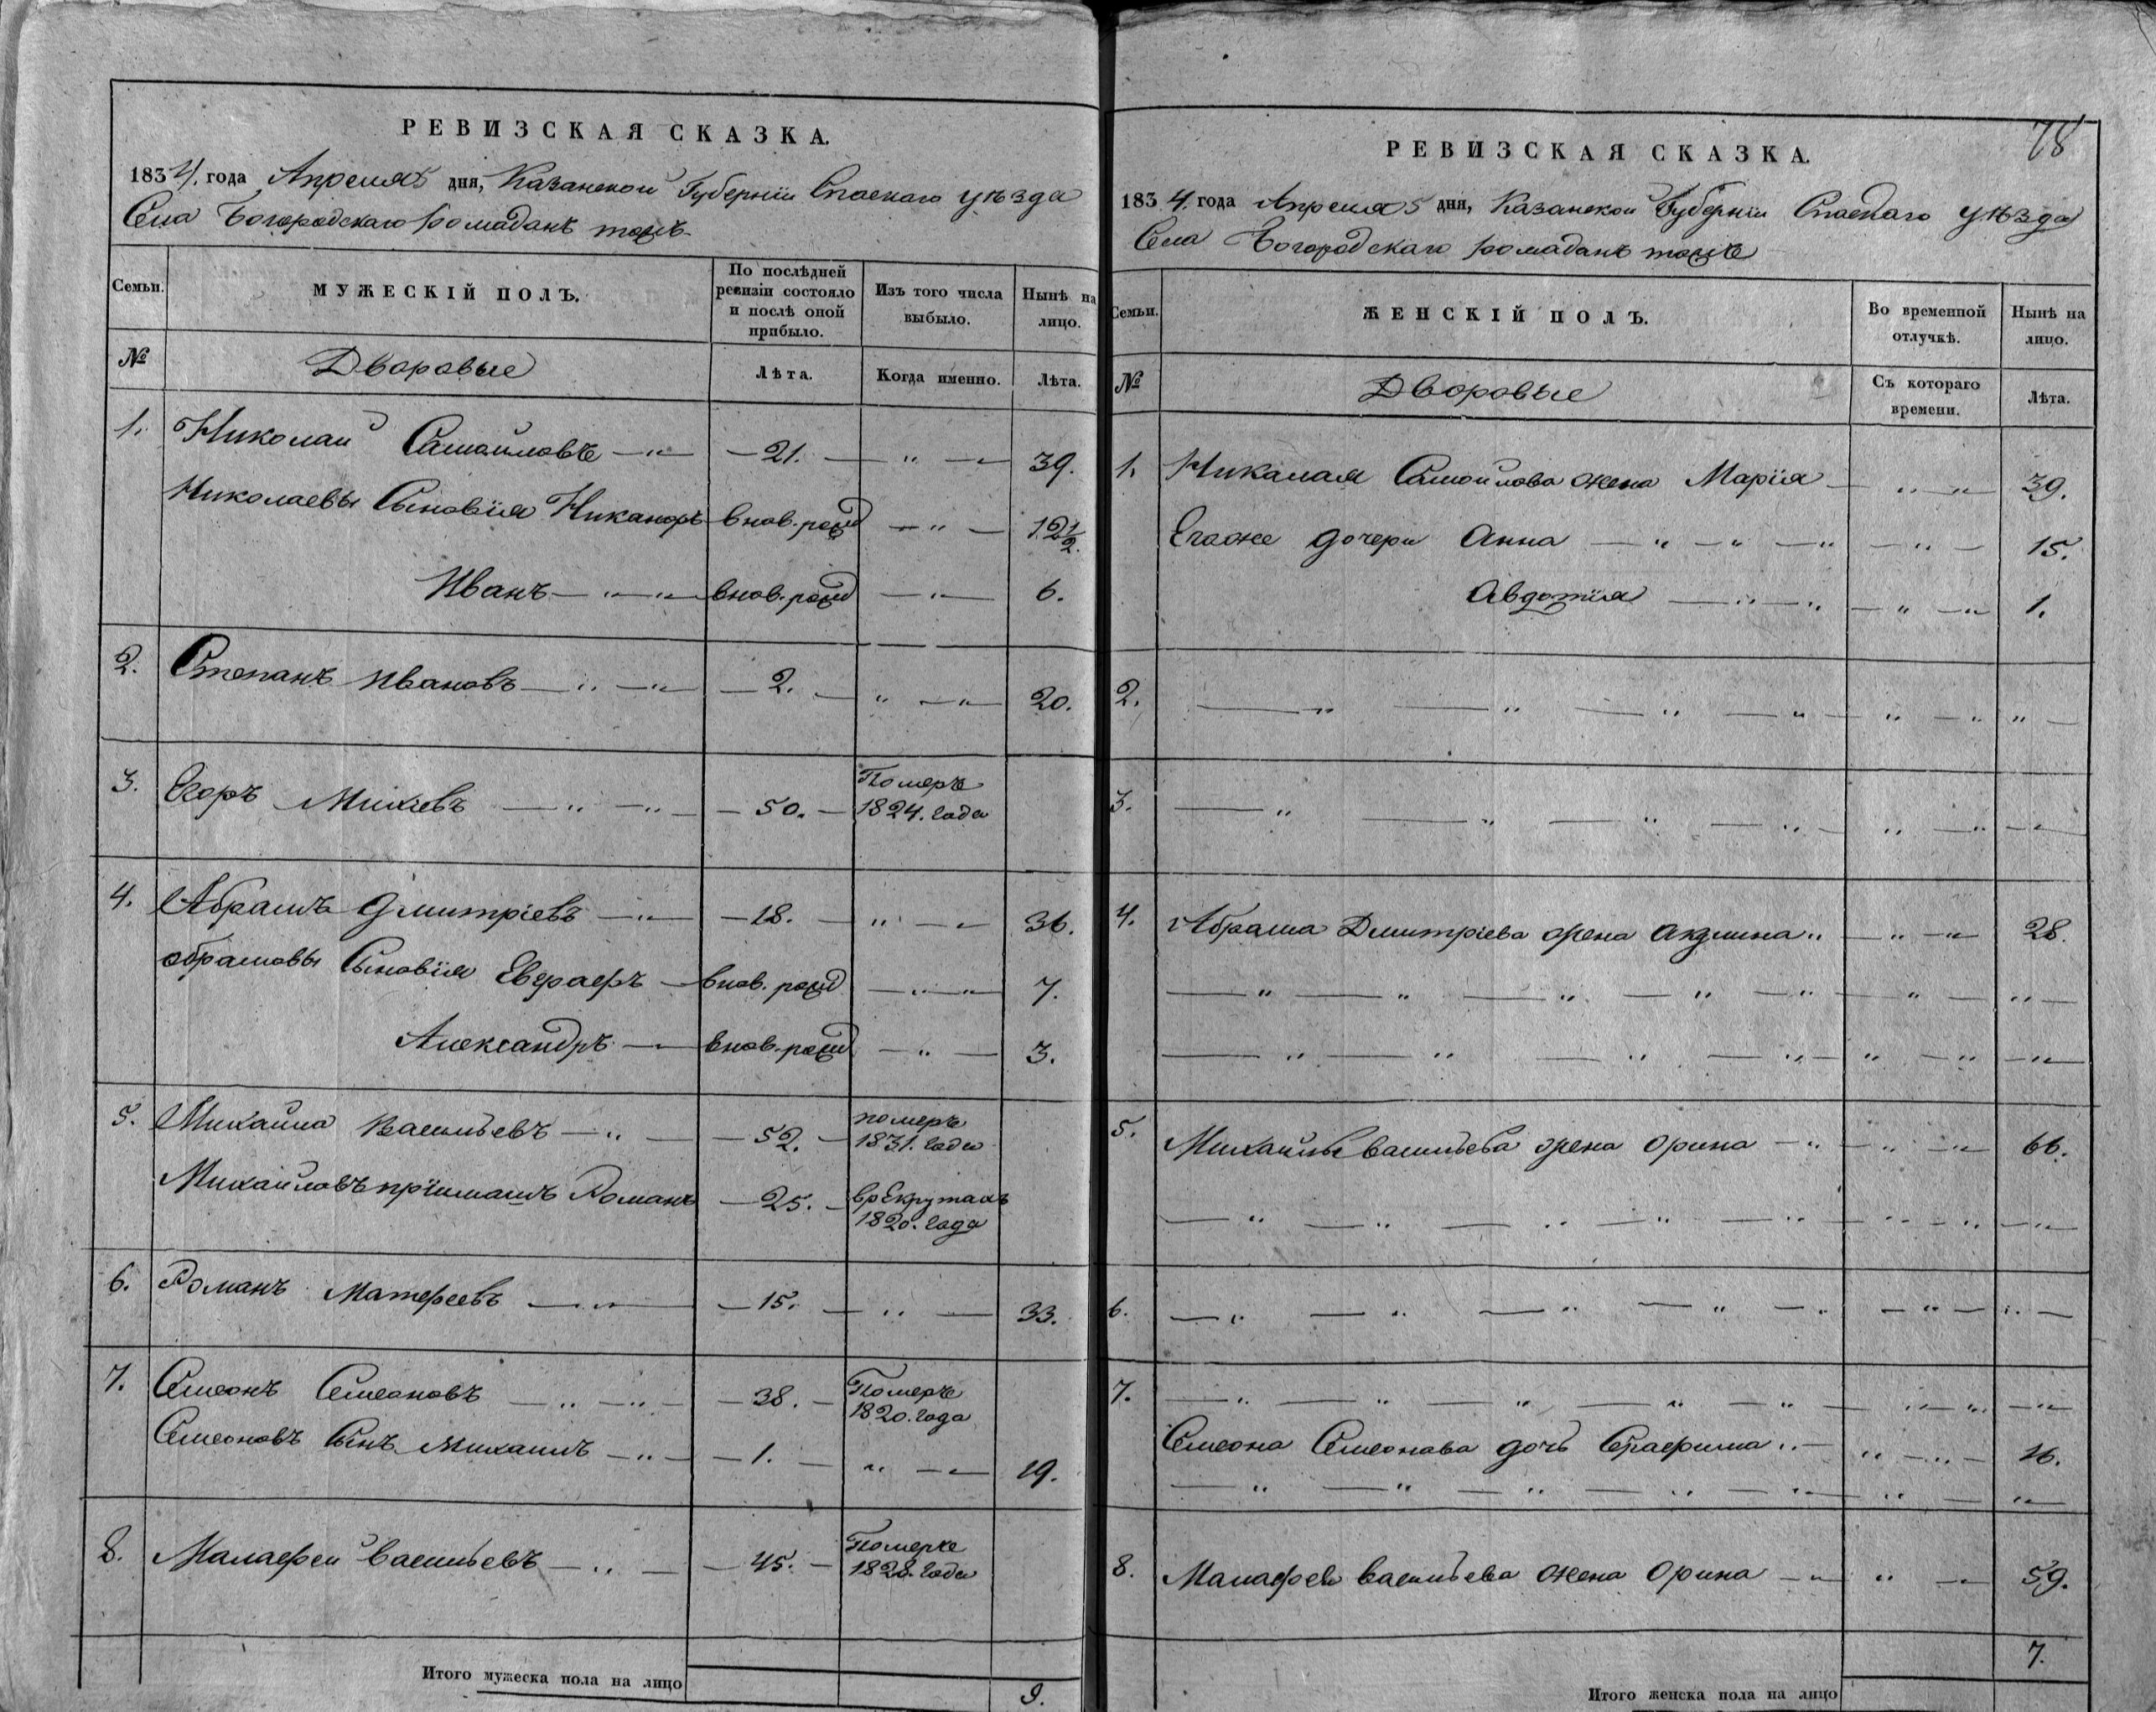 РЕВИЗСКАЯ СКАЗКА.
1834, года Апреля 5 дня, Казанской Губерніи Спаскаго уѣзда
Села Богородскаго Ромаданъ тожъ
Семьи. МУЖЕСКІЙ ПОЛЪ. По послѣдней ревизіи состояло и послѣ оной прибыло. Изъ того числа выбыло. Нынѣ на лицо.
№ Дворовые Лѣта. Когда именно. Лѣта.
1. Николай Самойловъ —"— — 21. — " — 39.
Николаевы Сыновія Никаноръ внов. рожд — " — 12 1/2.
Иванъ — " — внов. рожд — " — 6.
2. Степанъ Ивановъ — " — — 2. — " — " — 20.
3. Егоръ Михѣевъ — " — " — — 50. — Померъ 1824. года
4. Абрамъ Дмитріевъ — " — — 18. — " — 36.
Абрамовы Сыновія Евграфъ — внов. рожд — " — 7.
Александръ — внов. рожд — " — 3.
5. Михайла Васильевъ — " — — 52. — померъ 1831. года
Михайловъ пріимашъ Романъ — 25. — врЕкрутахъ 1820. года
6. Романъ Матвеевъ — " — — 15. — " — 33.
7. Семеонъ Семеоновъ — " — " — — 38. — Померъ 1820. года
Семеоновъ Сынъ Михаилъ — " — — 1. — " — 19.
8. Малафей Васильевъ — " — — 45. — Померъ 1828. года
Итого мужеска пола на лицо 9.
78
РЕВИЗСКАЯ СКАЗКА.
1834. года Апреля 5 дня, Казанской Губерніи Спаскаго уѣзда
Села Богородскаго Ромаданъ тожъ
Семьи. ЖЕНСКІЙ ПОЛЪ. Во временной отлучкѣ. Нынѣ на лицо.
№ Дворовые Съ котораго времени. Лѣта.
1. Никалая Самойлова жена Марія — " — " — 39.
Егоже дочери Анна — " — " — " — 15.
Авдотія — " — " — " — 1.
2. — " — " — " — " — " — " —
3. — " — " — " — " — " — " —
4. Абрама Дмитріева жена Акулина " — " — 28.
— " — " — " — " — " — " —
— " — " — " — " — " — " —
5. Михайлы Васильева жена Орина — " — " — 66.
— " — " — " — " — " — " —
6. — " — " — " — " — " — " —
7. — " — " — " — " — " — " —
Семеона Семеонова дочь Серафима " — " — 16.
— " — " — " — " — " — " —
8. Малафея Васильева жена Орина — " — " — 59.
7.
Итого женска пола на лицо